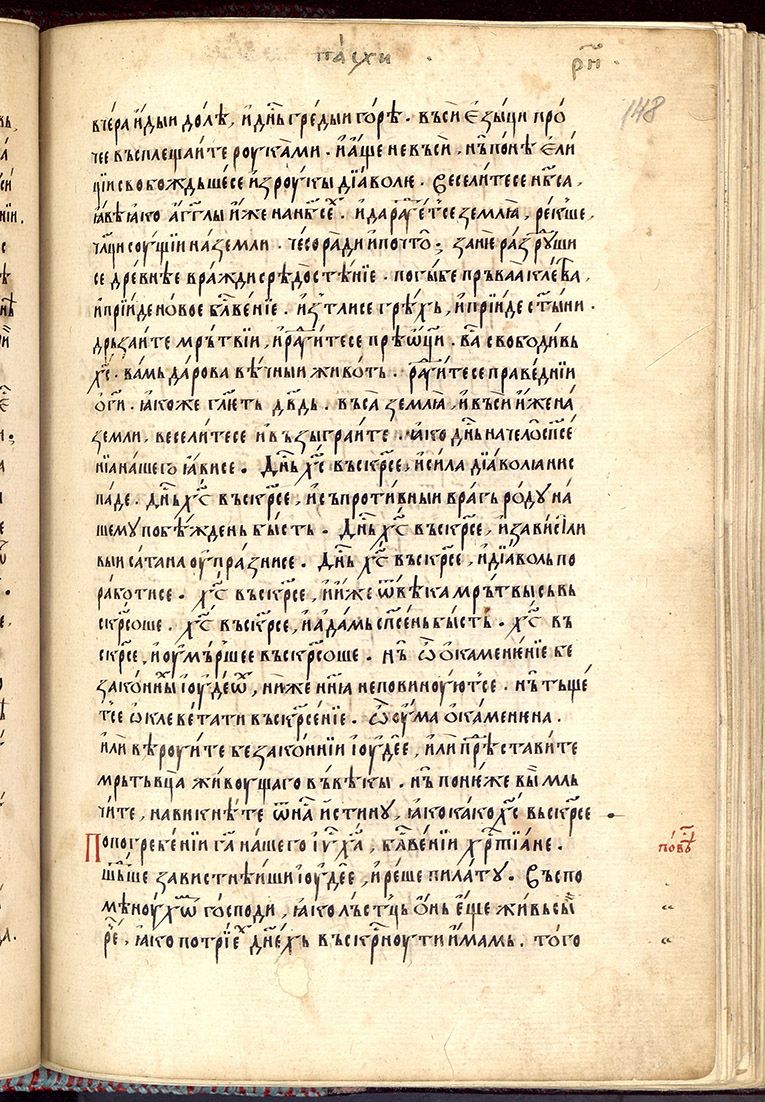 па́схи
рн҃и
148
вчера и҆́дыи до́лѣ, и҆ дн҃ь гре́дыи го́рѣ. въси є҆зы́ци про́
чее въсплещаи́те роука́ми. и҆ а҆́ще не въси̏, нь̏ поне́ є҆ли́
ции свобождьше́се и҆з роукы дїа́волю. Веселите́се нб҃са,
ꙗ҆́вѣ ꙗ҆ко а҆́гг҃лы и҆́же на нб҃се́х. и҆ да ра́дуетсе землꙗ̀, ре́кше,
ча́щи соущїи на земли. чесо ра́ди и҆ почто̀; зан̏е разр́ѹши
се дре́внѣе вражди сре́достѣ́нїе. поги́бе пръваа кле́тва,
и҆ прїи́де новое блг҃ве́нїе. и҆з̾тлисе грѣ́хь, и҆ прїи́де ст҃ыни.
дръзаи́те мрьтвїи, и҆ ра́дуитесе прѣѡ҆́ци. ва́с свободи́вь
хс҃. ва́мь да́рова вѣ́чныи живо́ть. ра́дуитесе пра́ведніи
ѻ҆́ти. ꙗ҆коже гл҃еть дв҃дь. въса землꙗ̀, и҆ въси и҆́же на́
земли, весели́тесе и҆ възыгра́ите. ꙗ҆́ко дн҃ь начело сп҃се́
нїа на́шего ꙗ҆́висе. Дн҃ь хс҃ въскр҃се, и҆ си́ла дїа́волꙗ нис
па́де. дн҃ь хс҃ въскр҃се, и҆ съпроти́вныи вра́гь роду на́
шему побѣ́ждень бы́сть. Дн҃ь хс҃ въскр҃се, и҆ зави́стли
выи сатана оу҆пра́знисе. Дн҃ь хс҃ въскр҃се, и҆ дїа́воль по
ра́ботисе. хс҃ въскр҃се, и҆ и҆́же ѿ вѣ́ка мрьтвы сьвь
скр҃соше. хс҃ въскр҃се, и҆ а҆да́мь сп҃се́нь бы́сть. хс҃ въ
скр҃се, и҆ оу҆мрьшее въскр҃соше. нь̏ ѽ ѡ҆каменє́нїе бе
зако́нных і҆оуде́ѡв, ниже нн҃ꙗ неповиноу́ютсе. нь̏ тъще́
тсе ѡ҆клевета́ти въскр҃се́нїе. ѽ оу҆ма ѻ҆ка́менена.
и҆ли̏ вѣ́роуите безако́ннїи і҆оуде́е, и҆ли̏ прѣ́ставите
мрьтьвца живоу́щаго въ вѣ́кы. нь̏ поне́же вы̏ мль
чи́те, навикне́те ѿ на́с и҆́стину, ꙗ҆ко ка́ко хс҃ въскр҃се
По погребе́нїи га҃ на́шего і҆с҃ух҃а, блг҃ве́нїи хрⷭ҇тїане.
шьⷣше зависть́нѣиши і҆оуде́е, и҆ реше пила́ту. Въспо
мѣноу́хѡм го́споди, ꙗ҆ко льсть́ць ѻ҆́нь є҆́ще живь сы̏
ре҃, ꙗ҆ко по трїе́х дн҃ехь въскр҃ноути и҆́мамь. то́го